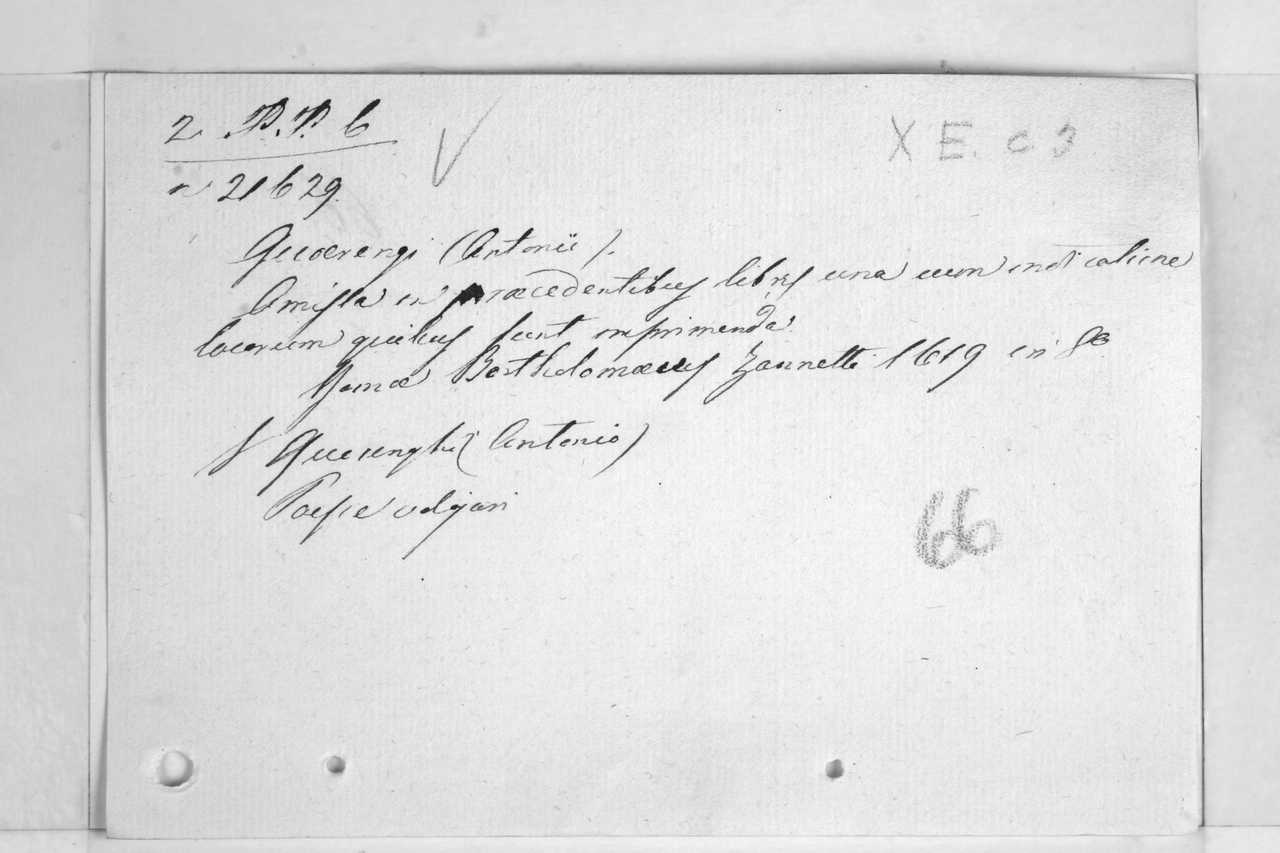 2 P.P. 6
X E. c 3
n 21629.
Quœrengi (Antonii).
Omissa in præcedentibus libris una cum indicatione
locorum quibus sunt imprimenda.
Romæ Bartholomæus Zannetti 1619 in 8º
Querenghi (Antonio)
Poesie volgari
66